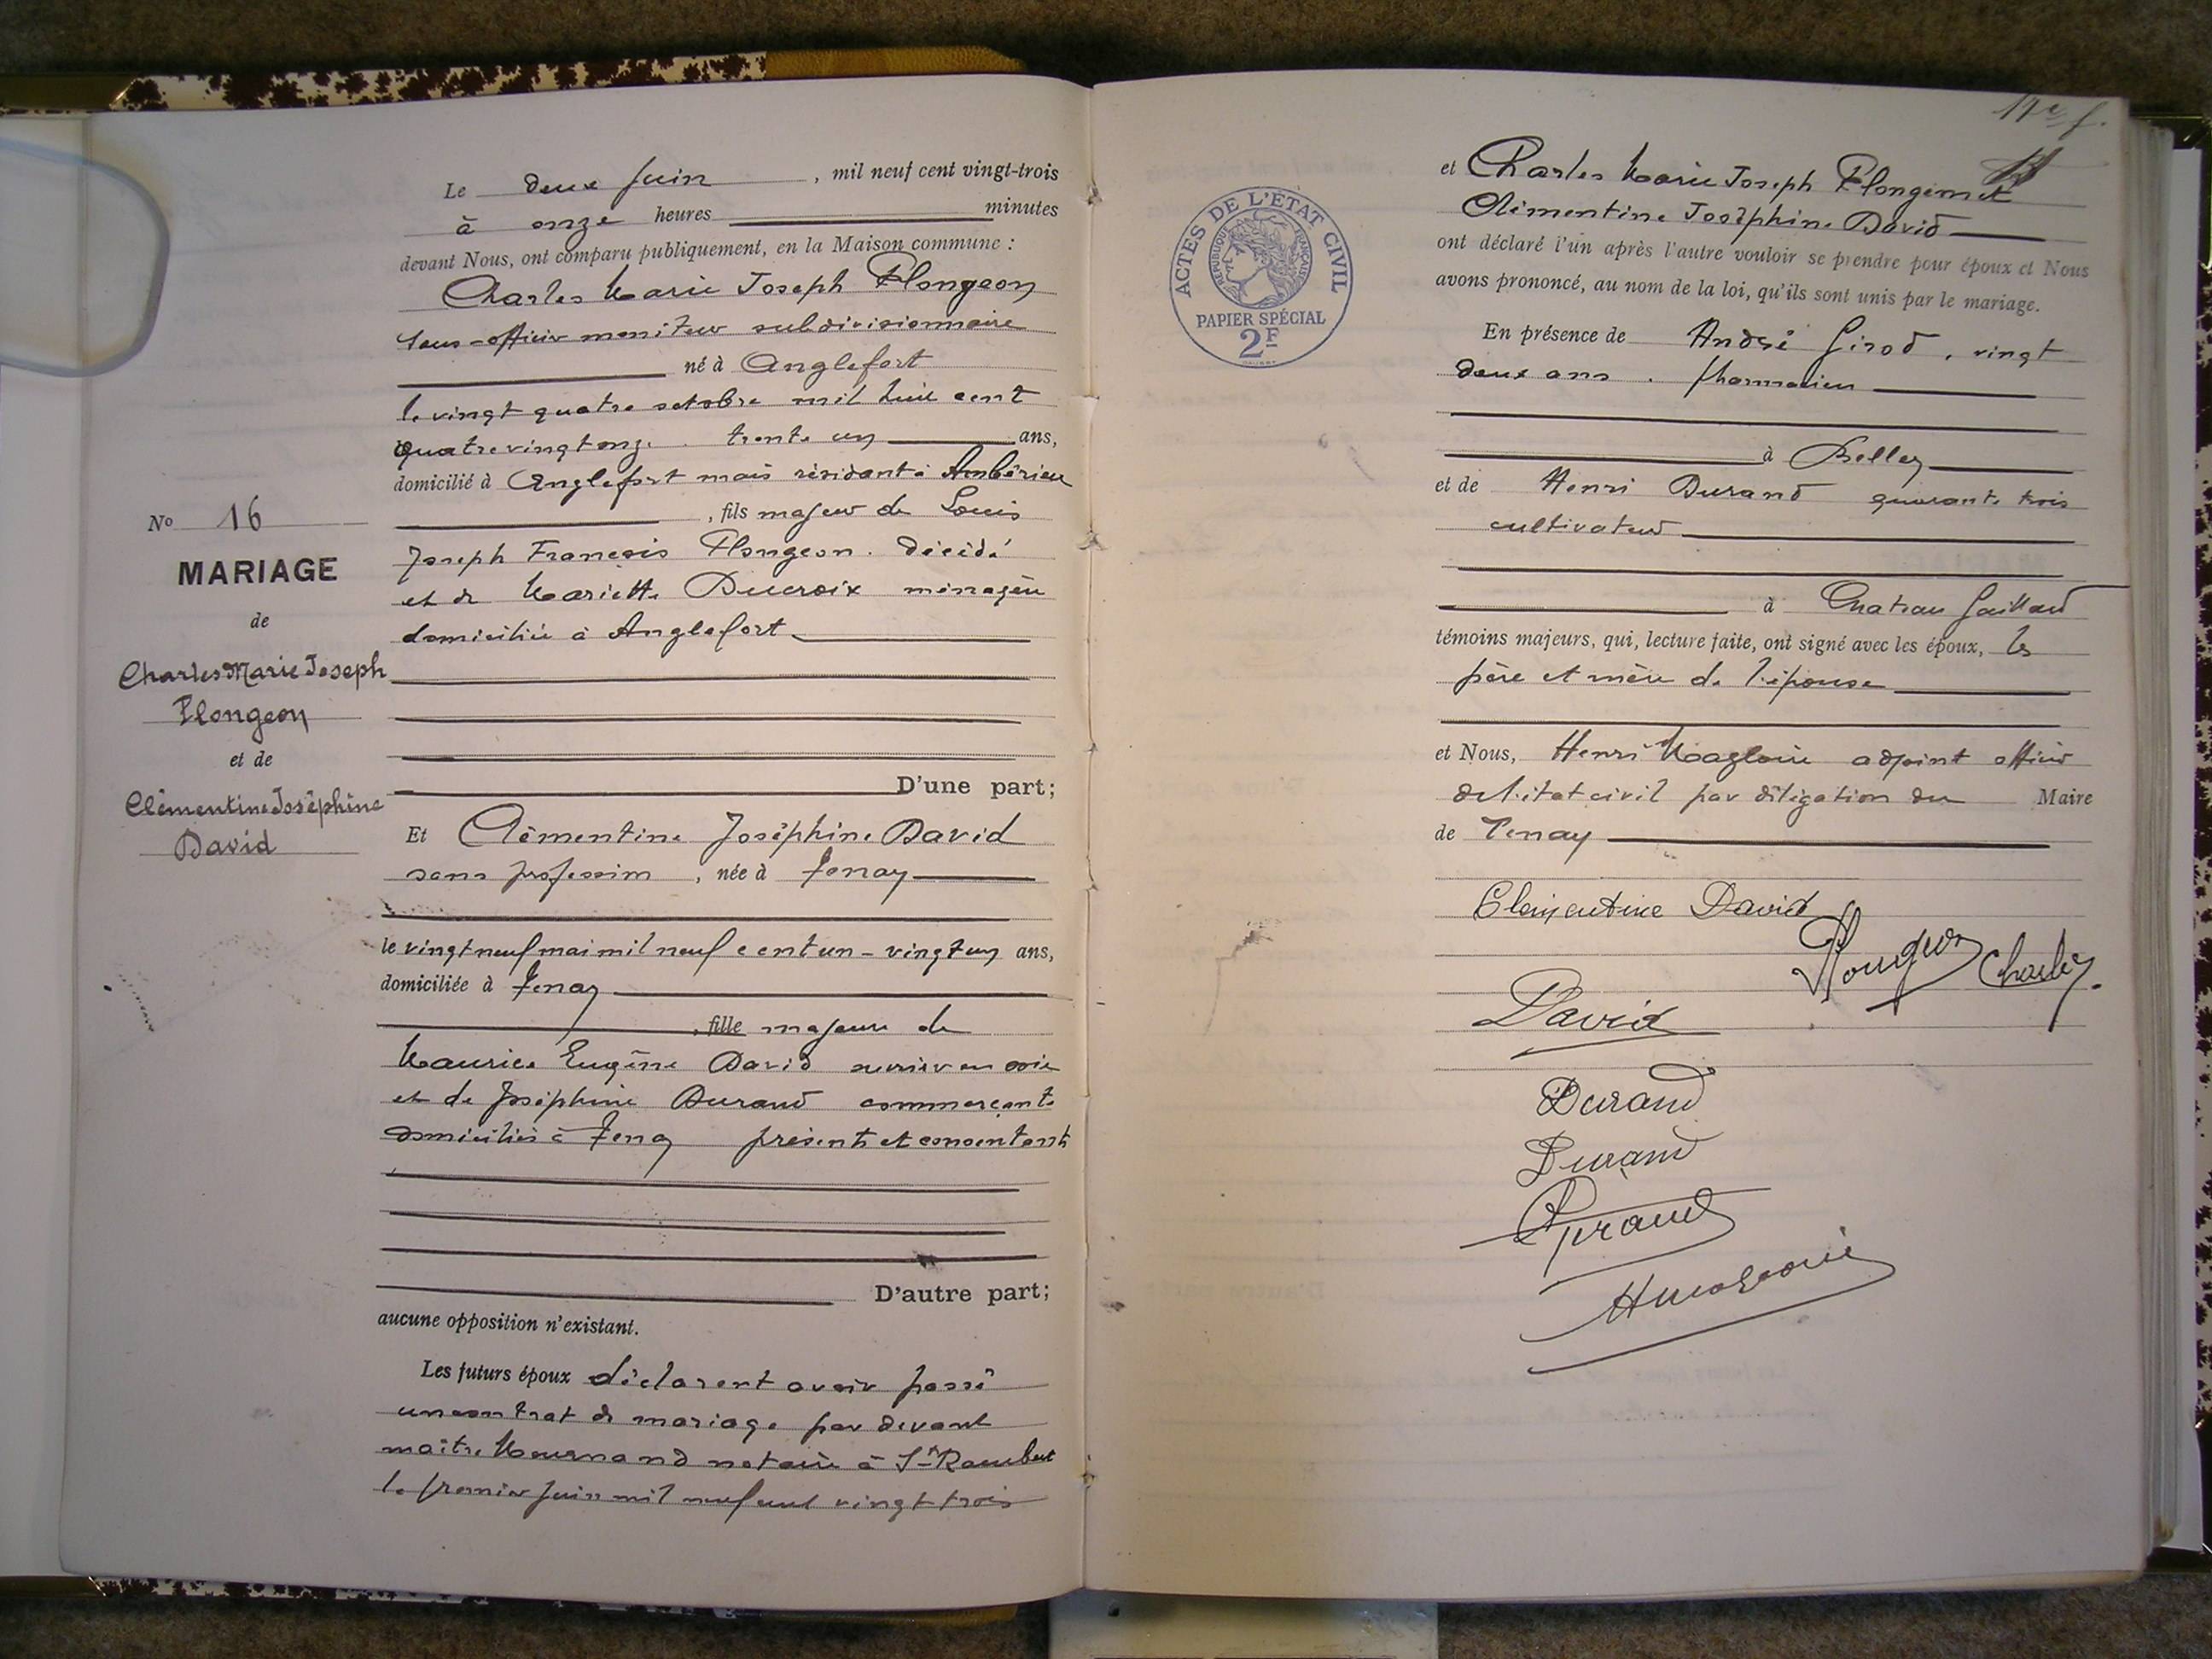 Le deux juin, mil neuf cent vingt-trois
à onze heures minutes
devant Nous, ont comparu publiquement, en la Maison commune :
Charles Marie Joseph Plongeon
sous-officier moniteur subdivisionnaire
né à Anglefort
le vingt quatre octobre mil huit cent
quatre vingt onze. trente un ans,
domicilié à Anglefort mais résidant à Ambérieu
, fils majeur de Louis
Joseph François Plongeon. décédé
et de Mariette Ducroix ménagère
domiciliée à Anglefort
D'une part;
No 16
MARIAGE
de
Charles Marie Joseph
Plongeon
et de
Clémentine Joséphine
David
Et Clémentine Joséphine David
sans profession, née à Tenay
le vingt neuf mai mil neuf cent un - vingt un ans,
domiciliée à Tenay
, fille majeure de
Maurice Eugène David ouvrier en soie
et de Joséphine Durand commerçante
domiciliés à Tenay présents et consentants
D'autre part;
aucune opposition n'existant.
Les futurs époux déclarent avoir passé
un contrat de mariage par devant
maître notaire à St Rambert
le premier juin mil neuf cent vingt trois
et Charles Marie Joseph Plongeon et
Clémentine Joséphine David
ont déclaré l'un après l'autre vouloir se prendre pour époux et Nous
avons prononcé, au nom de la loi, qu'ils sont unis par le mariage.
En présence de André Girod, vingt
deux ans. pharmacien
à Belley
et de Henri Durand quarante trois
cultivateur
à Chateau Gaillard
témoins majeurs, qui, lecture faite, ont signé avec les époux, les
père et mère de l'épouse
et Nous, Henri Magloire adjoint officier
de l'état civil par délégation du Maire
de Tenay
Clementine David
Plongeon Charles.
David
Durand
Durand
ACTES DE L'ÉTAT CIVIL
RÉPUBLIQUE FRANÇAISE
PAPIER SPÉCIAL
2F